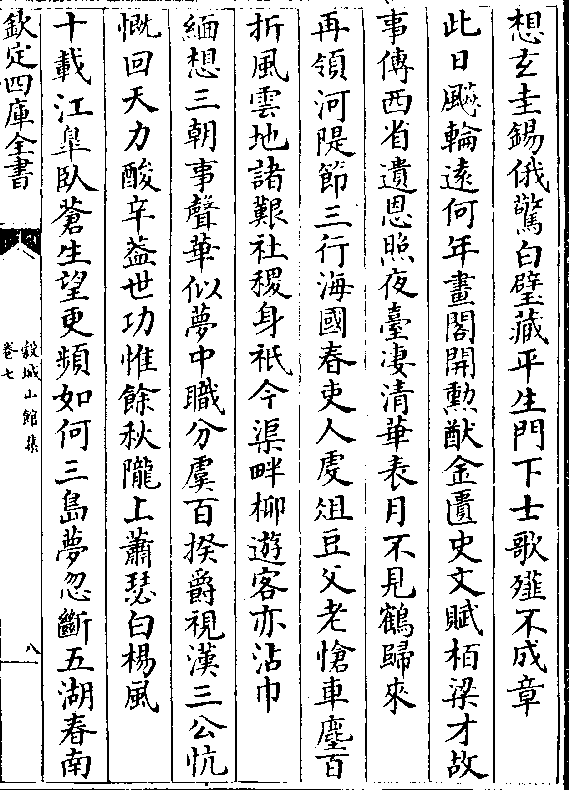 想玄圭錫俄驚白璧藏平生門下士歌薤不成章
此日飈輪遠何年畫閣開勲猷金匱史文賦栢梁才故
事傳西省遺恩照夜臺凄清華表月不見鶴歸來
再領河隄節三行海國春吏人虔俎豆父老愴車塵百
折風雲地諸艱社稷身祇今渠畔柳遊客亦沾巾
緬想三朝事聲華似夢中職分虞百揆爵視漢三公忼
慨回天力酸辛葢世功惟餘秋隴上蕭瑟白楊風
十載江臯臥蒼生望更頻如何三島夢忽斷五湖春南
欽定四庫全書
穀城山館集
卷七
八